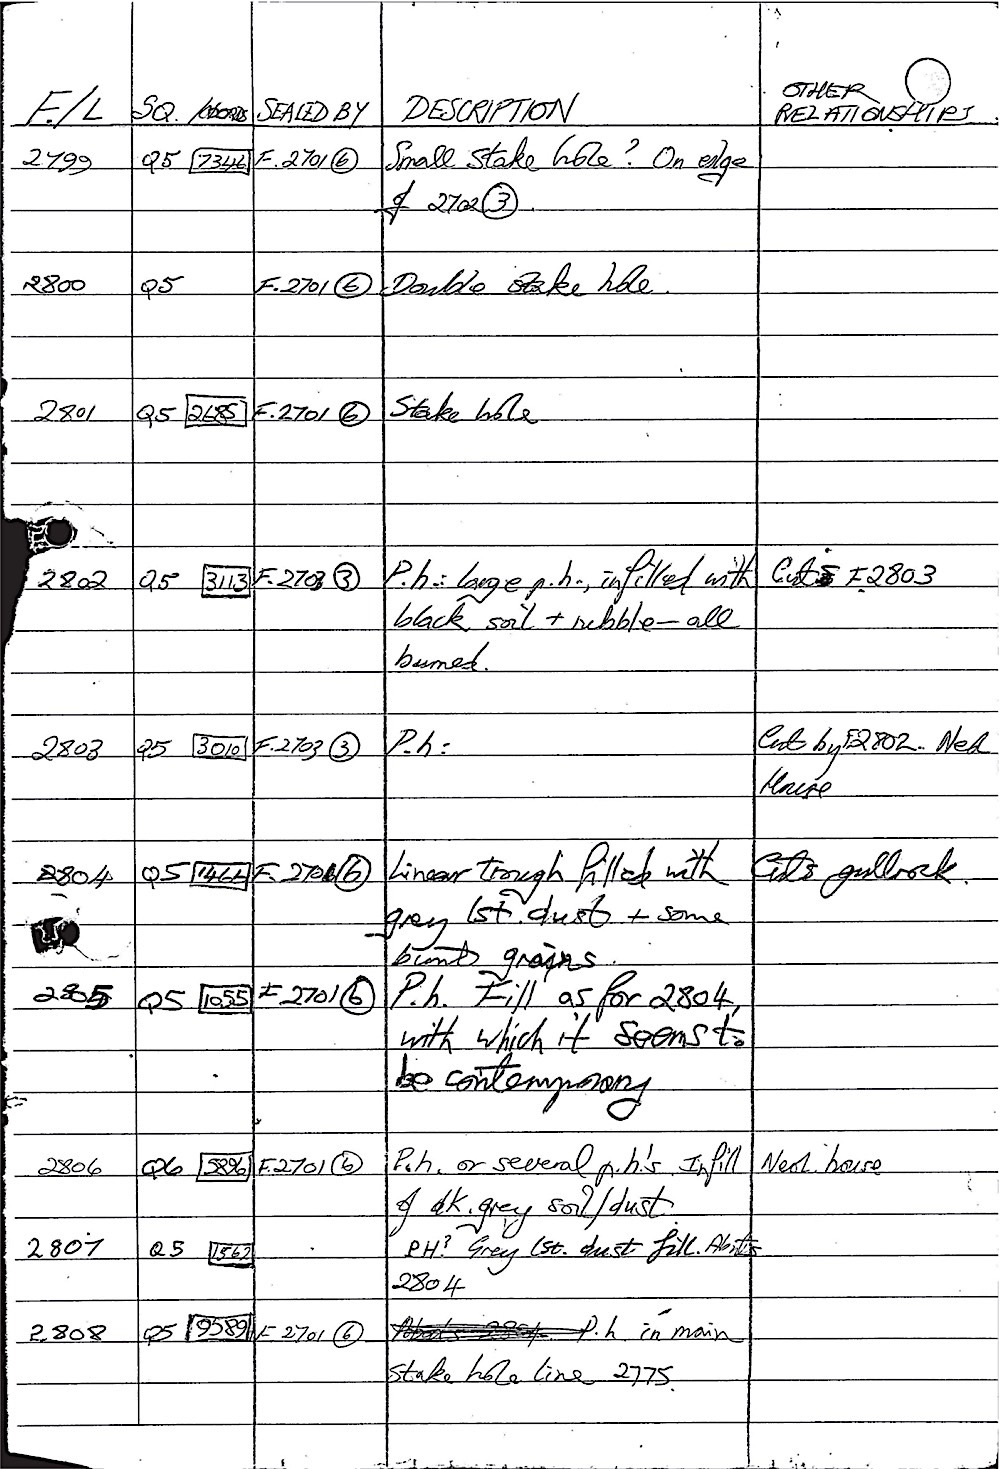 OTHER
F./L SQ. /COORDS SEALED BY DESCRIPTION RELATIONSHIPS
2799 Q5 7346 F.2701 6 Small stake hole? On edge
of 2702 3.
2800 Q5 F.2701 6 Double stake hole.
2801 Q5 2685 F.2701 6 Stake hole
2802 Q5 3113 F.2703 3 P.h.: large p.h., infilled with Cuts F2803
black soil + rubble – all
burned.
2803 Q5 3010 F.2703 3 P.h: Cut by F2802. Neol
House
2804 Q5 1466 F. 2701 6 Linear trough filled with Cuts gullrock.
grey lst. dust + some
burnt grains.
2805 Q5 1055 F 2701 6 P.h. Fill as for 2804,
with which it seems to
be contemporary
2806 Q6 5896 F.2701 6 P.h. or several p.h's. Infill Neol. house
of dk. grey soil/dust
2807 Q5 1562 PH? Grey lst. dust fill. Abuts
2804
2808 Q5 9589 F 2701 6 P.h in main
stake hole line 2775.